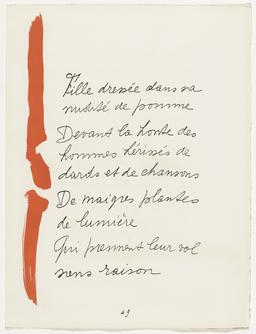 Fille dressée dans sa
nudité de pomme
Devant la honte des
hommes hérissés de
dards et de chansons
De maigres plantes
de lumière
Qui prennent leur vol
sens raison
49